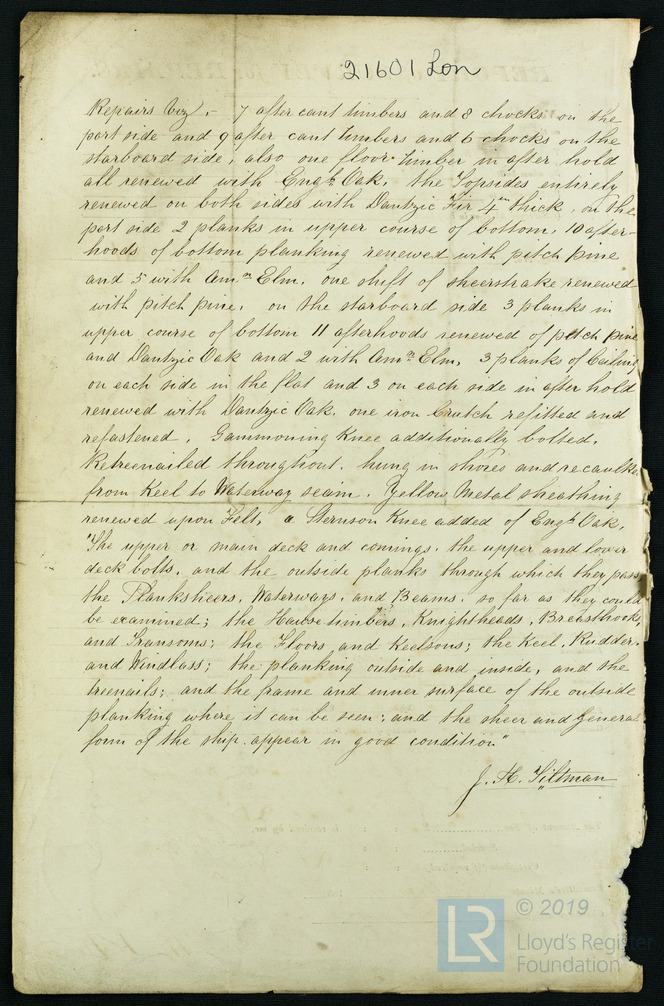 21601 Lon
Repairs Viz. - 7 after cant timbers and 8 chocks on the
port side and 9 after cant timbers and 6 chocks on the
starboard side, also one floor timber in after hold
all renewed with Engh. Oak, the Topsides entirely
renewed on both sides with Dantzic Fir 4in thick, on the
port side 2 planks in upper course of bottom, 10 after-
hoods of bottom planking renewed with pitch pine
and 5 with Amn. Elm, one shift of sheerstrake renewed
with pitch pine, on the starboard side 3 planks in
upper course of bottom 11 afterhoods renewed of pitch pine
and Dantzic Oak and 2 with Amn. Elm, 3 planks of Ceiling
on each side in the flat and 3 on each side in after hold
renewed with Dantzic Oak, one iron Crutch refitted and
refastened, Gammoning Knee additionally bolted,
Retreenailed throughout, hung in shores and recaulked
from Keel to Waterway seam, Yellow Metal sheathing
renewed upon Felt, a Sternson Knee added of Engh. Oak,
"The upper or main deck and comings, the upper and lower
deck bolts, and the outside planks through which they pass
the Planksheers, Waterways, and Beams, so far as they could
be examined; the Hawsetimbers, Knightheads, Breasthooks,
and Transoms; the Floors and Keelsons; the Keel, Rudder,
and Windlass; the planking outside and inside, and the
treenails; and the frame and inner surface of the outside
planking where it can be seen; and the sheer and general
form of the ship, appear in good condition"
J. H. Tiltman
LR © 2019
Lloyd's Register
Foundation